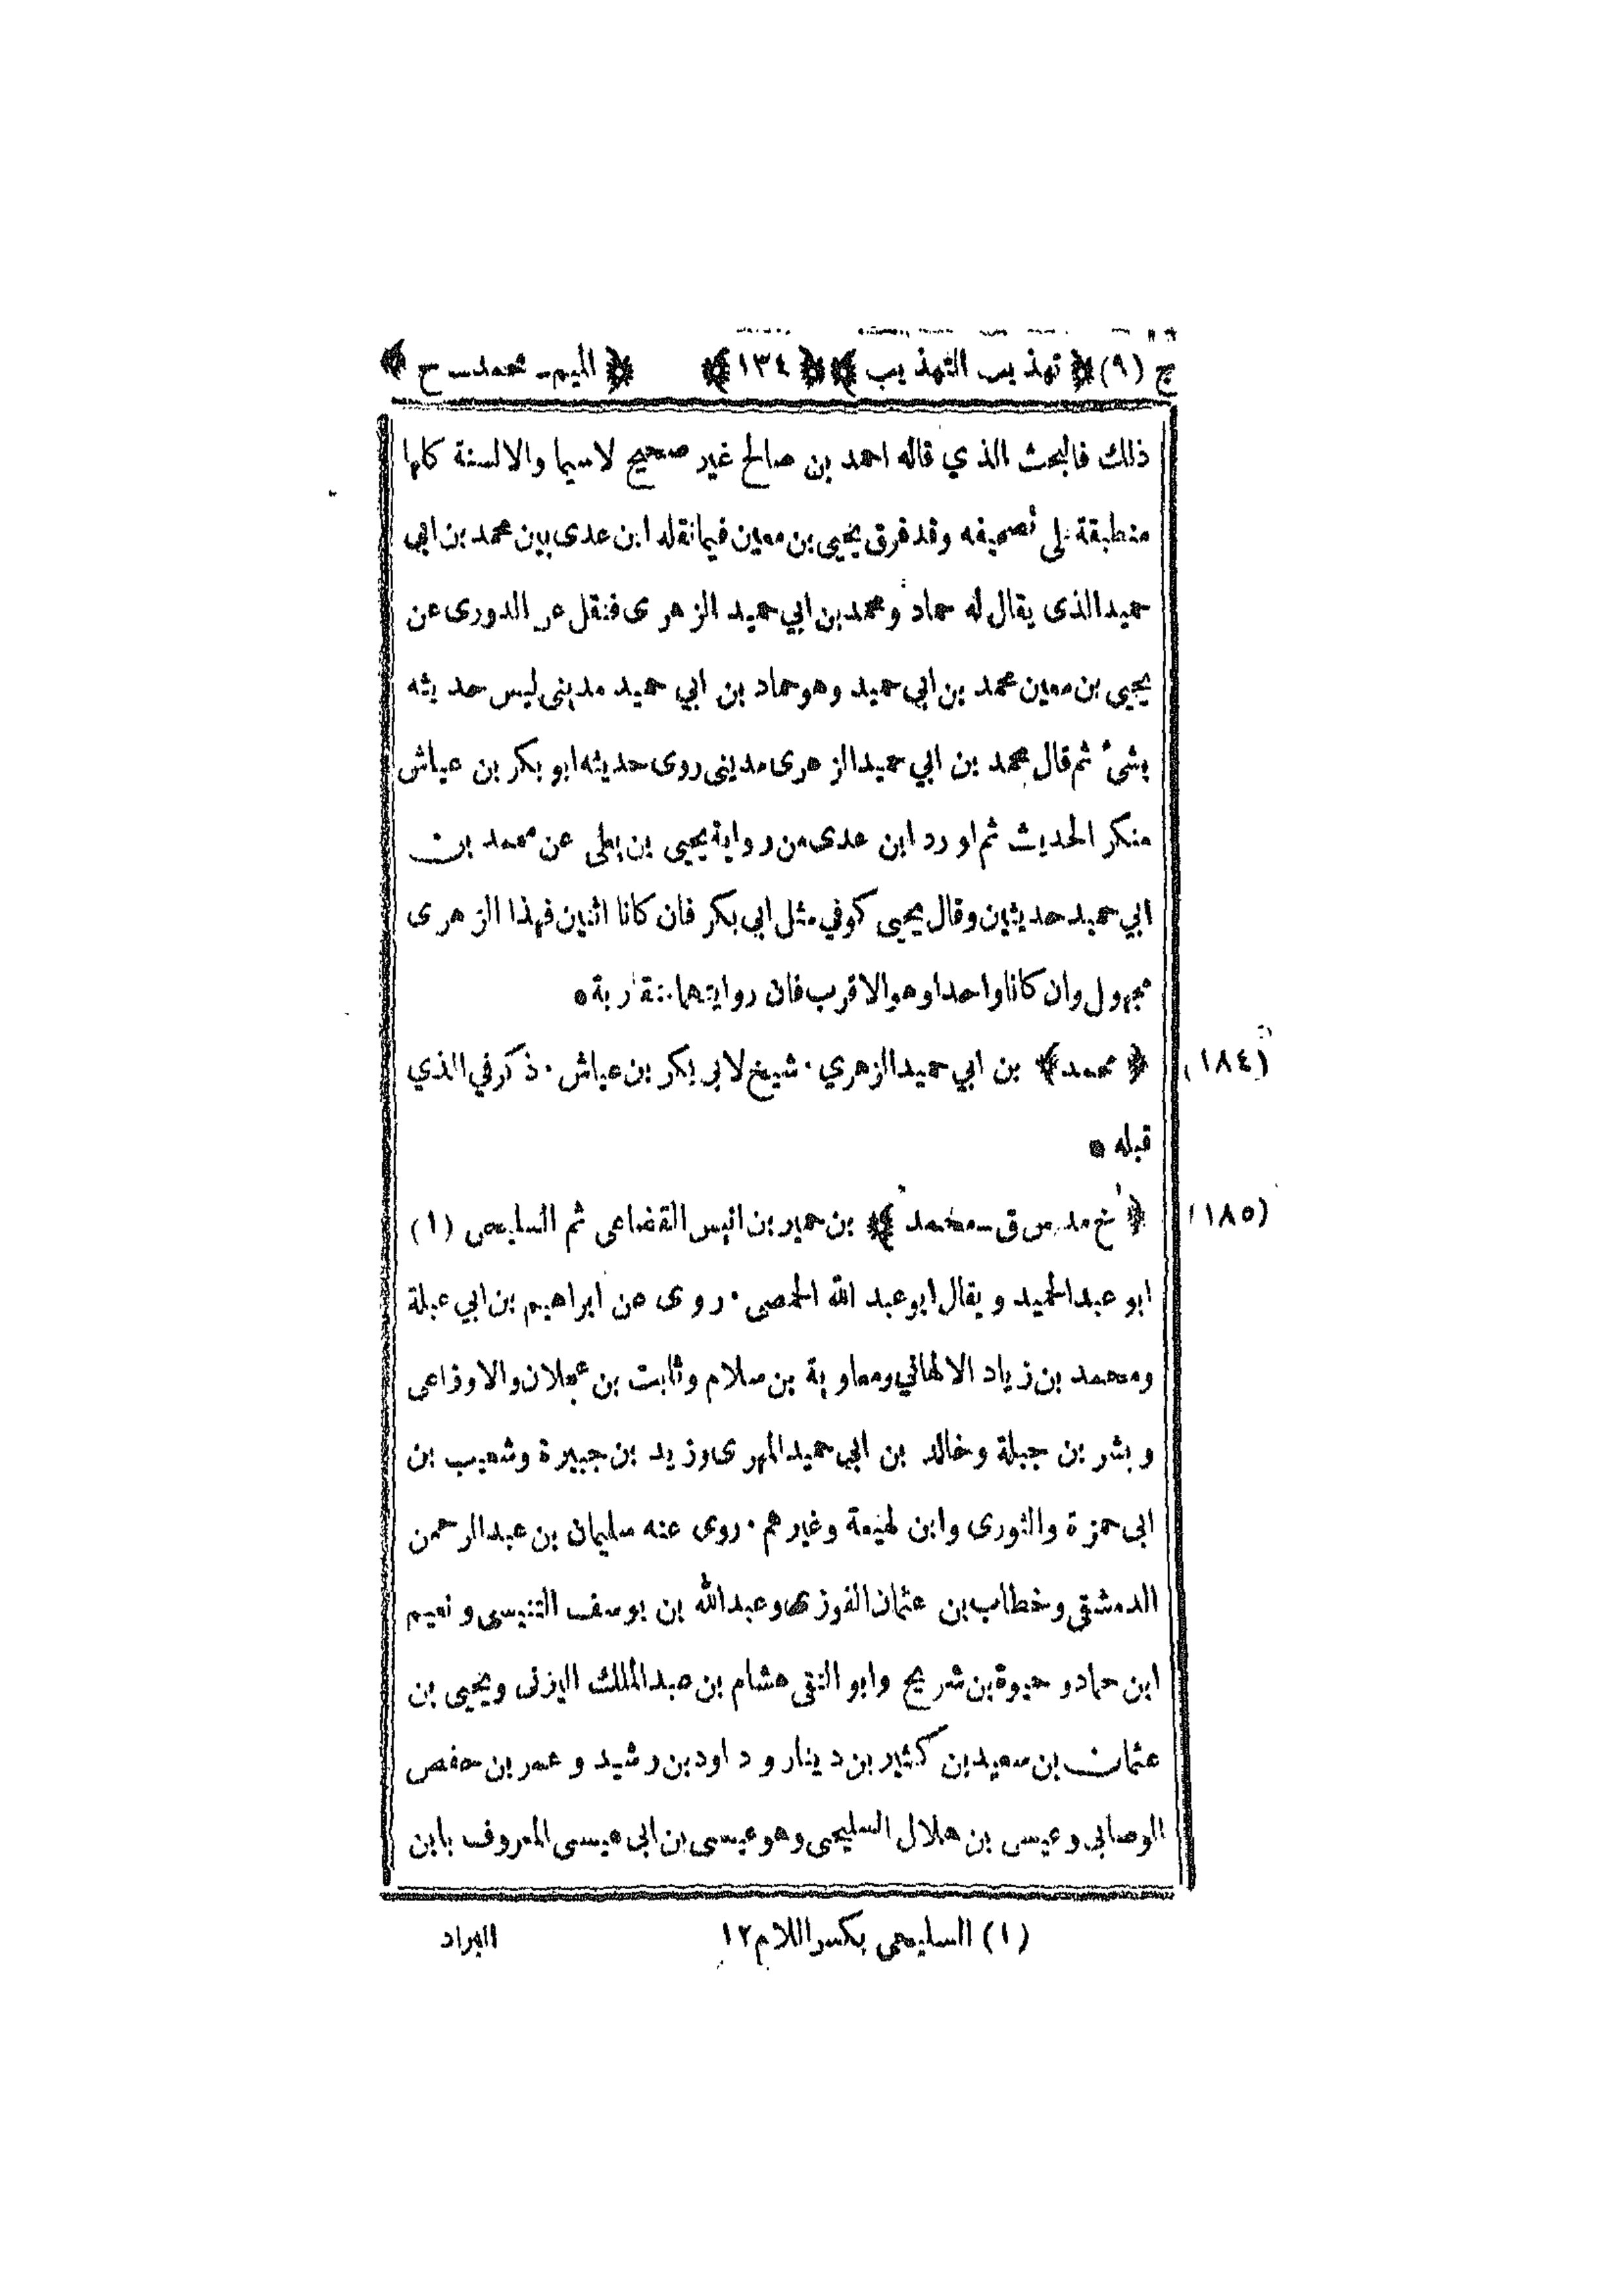 ج (٩) ﴿ تهذيب التهذيب ﴾ ﴿ ١٣٤ ﴾ ﴿ الميم - محمد - ح ﴾
ذلك فالبحث الذي قاله احمد بن صالح غير صحيح لاسيما والالسنة كلها
منطبقة على تضعيفه وقد فرق يحيى بن معين فيما نقله ابن عدى بين محمد بن ابي
حميد الذى يقال له حماد ومحمد بن ابي حميد الزهرى فنقل عن الدورى عن
يحيى بن معين محمد بن ابي حميد وهو حماد بن ابي حميد مدينى ليس حديثه
بشئ ثم قال محمد بن ابي حميد الزهرى مدينى روى حديثه ابو بكر بن عياش
منكر الحديث ثم اورد ابن عدى من رواية يحيى بن يعلى عن محمد بن
ابي حميد حديثين وقال يحيى كوفي مثل ابي بكر فان كانا اثنين فهذا الزهرى
مجهول وان كانا واحدا وهو الاقرب فان روايتهما متقاربة ٥
(١٨٤) ﴿ محمد ﴾ بن ابي حميد الزهري · شيخ لابى بكر بن عياش · ذكر في الذي
قبله ٥
(١٨٥) ﴿ خ مد س ق - محمد ﴾ بن حمير بن انيس القضاعى ثم السليحى (١)
ابو عبد الحميد ويقال ابو عبد الله الحمصى · روى عن ابراهيم بن ابي عبلة
ومحمد بن زياد الالهاني ومعاوية بن سلام وثابت بن عجلان والاوزاعى
وبشر بن جبلة وخالد بن ابي حميد المهرى وزيد بن جبيرة وشعيب بن
ابى حمزة والثورى وابن لهيعة وغيرهم · روى عنه سليمان بن عبد الرحمن
الدمشقى وخطاب بن عثمان الفوزى وعبد الله بن يوسف التنيسى ونعيم
ابن حماد وحيوة بن شريح وابو التقى هشام بن عبد الملك اليزنى ويحيى بن
عثمان بن سعيد بن كثير بن دينار وداود بن رشيد وعمر بن حفص
الوصابى وعيسى بن هلال السليحى وهو عيسى بن ابى عيسى المعروف بابن
(١) السليحى بكسر اللام ١٢
البراد